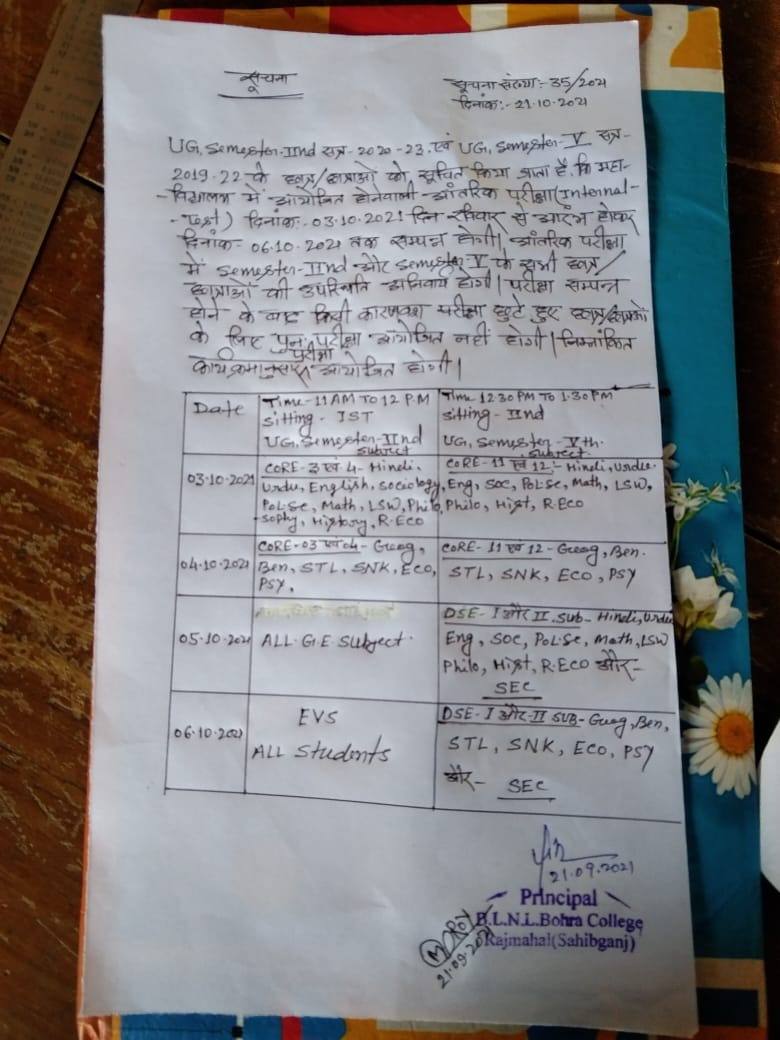 सूचना
सूचना संख्या:- 35/2021
दिनांक:- 21.10.2021
UG, Semester-IInd सत्र- 2020-23 एवं UG, Semester-V सत्र-
2019-22 के छात्र/छात्राओं को सूचित किया जाता है. कि महा-
-विद्यालय में आयोजित होनेवाली आंतरिक परीक्षा(Internal-
-Test) दिनांक- 03.10.2021 दिन रविवार से आरंभ होकर
दिनांक- 06.10.2021 तक सम्पन्न होगी। आंतरिक परीक्षा
में Semester-IInd और Semester-V के सभी छात्र/
छात्राओं की उपस्थिति अनिवार्य होगी। परीक्षा सम्पन्न
होने के बाद किसी कारणवश परीक्षा छुटे हुए छात्र/छात्राओं
के लिए पुनः परीक्षा आयोजित नहीं होगी। निम्नांकित
परीक्षा
कार्यक्रमानुसार आयोजित होगी।
Date
Time-11AM TO 12 P.M
Sitting - IST
UG, Semester-IInd
Subject
Time 12:30 PM TO 1:30 PM
Sitting - IInd
UG, Semester-Vth.
Subject
03.10.2021
CORE-3 एवं 4- Hindi,
Urdu, English, Sociology,
Pol.Sc, Math, LSW, Philo
-sophy, History, R.Eco
CORE-11 एवं 12:- Hindi, Urdu.
Eng, Soc, Pol.Sc, Math, LSW,
Philo, Hist, R.Eco
04.10.2021
CORE-03 एवं 04- Geog,
Ben, STL, SNK, ECO,
PSY.
CORE-11 एवं 12- Geog, Ben.
STL, SNK, ECO, PSY
05.10.2021
ALL G.E. Subject.
DSE-I और II. Sub- Hindi, Urdu
Eng, SOC, Pol.Sc, Math, LSW
Philo, Hist, R.ECO और-
SEC
06.10.2021
EVS
ALL Students
DSE-I और-II SUB- Geog, Ben,
STL, SNK, Eco, PSY
और- SEC
21.09.2021
Principal
B.L.N.L.Bohra College
Rajmahal(Sahibganj)
M. Roy
21.09.2021